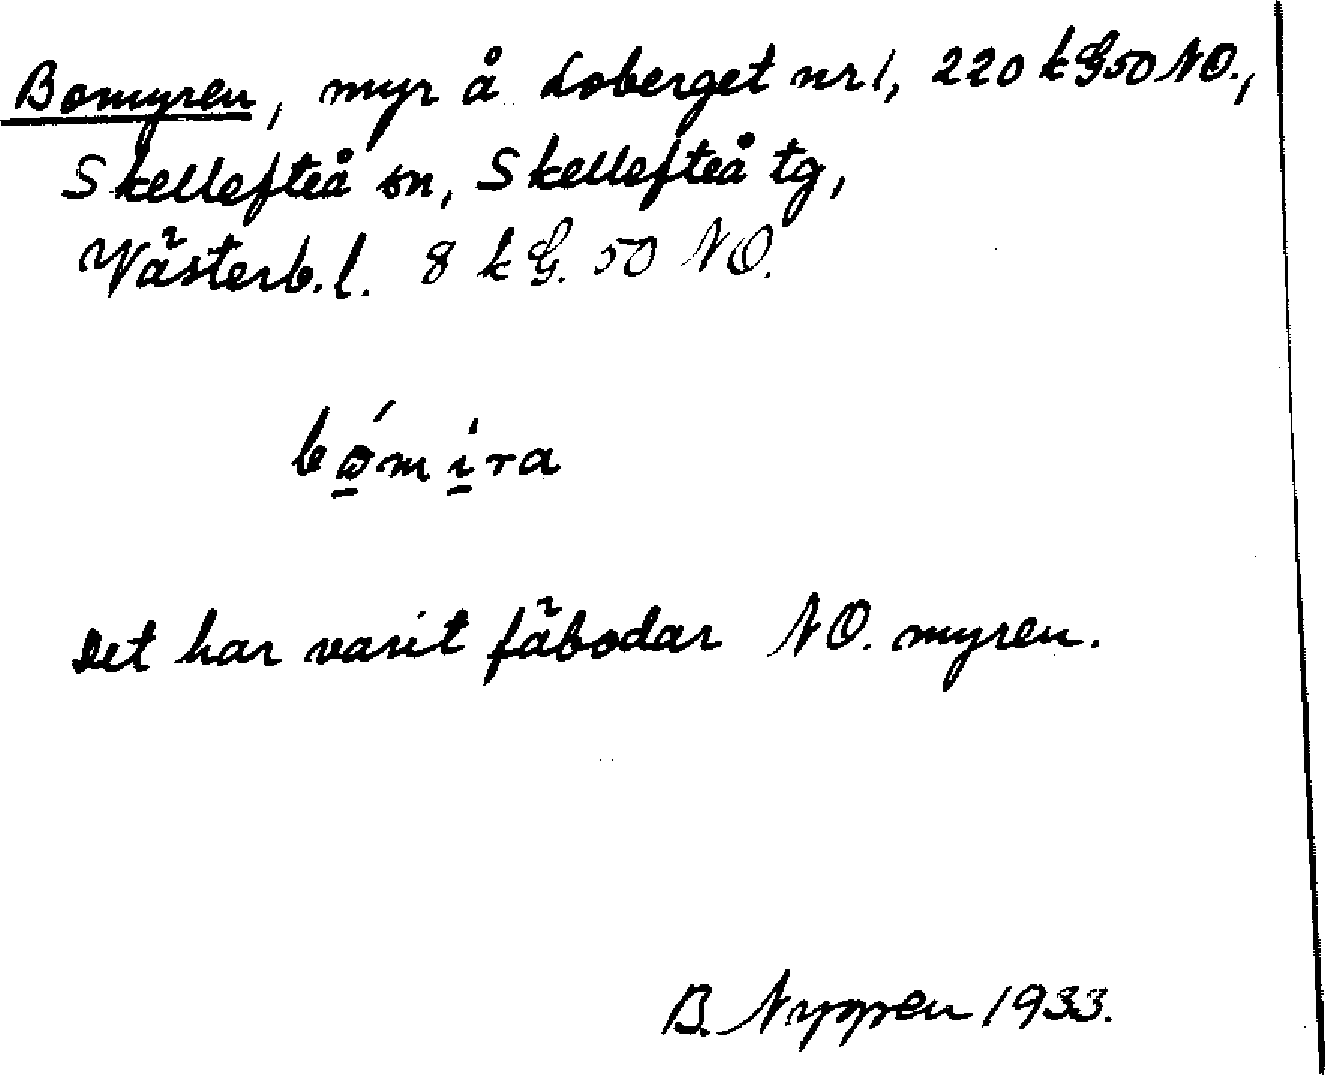 Bomyren, myr å Loberget nr 1, 220 kG50 NO.,
Skellefteå sn, Skellefteå tg,
Västerb. l. 8 kG. 50 NO.
bó̱mi̱ra
Det har varit fäbodar NO. myren.
B. Nyppen 1933.